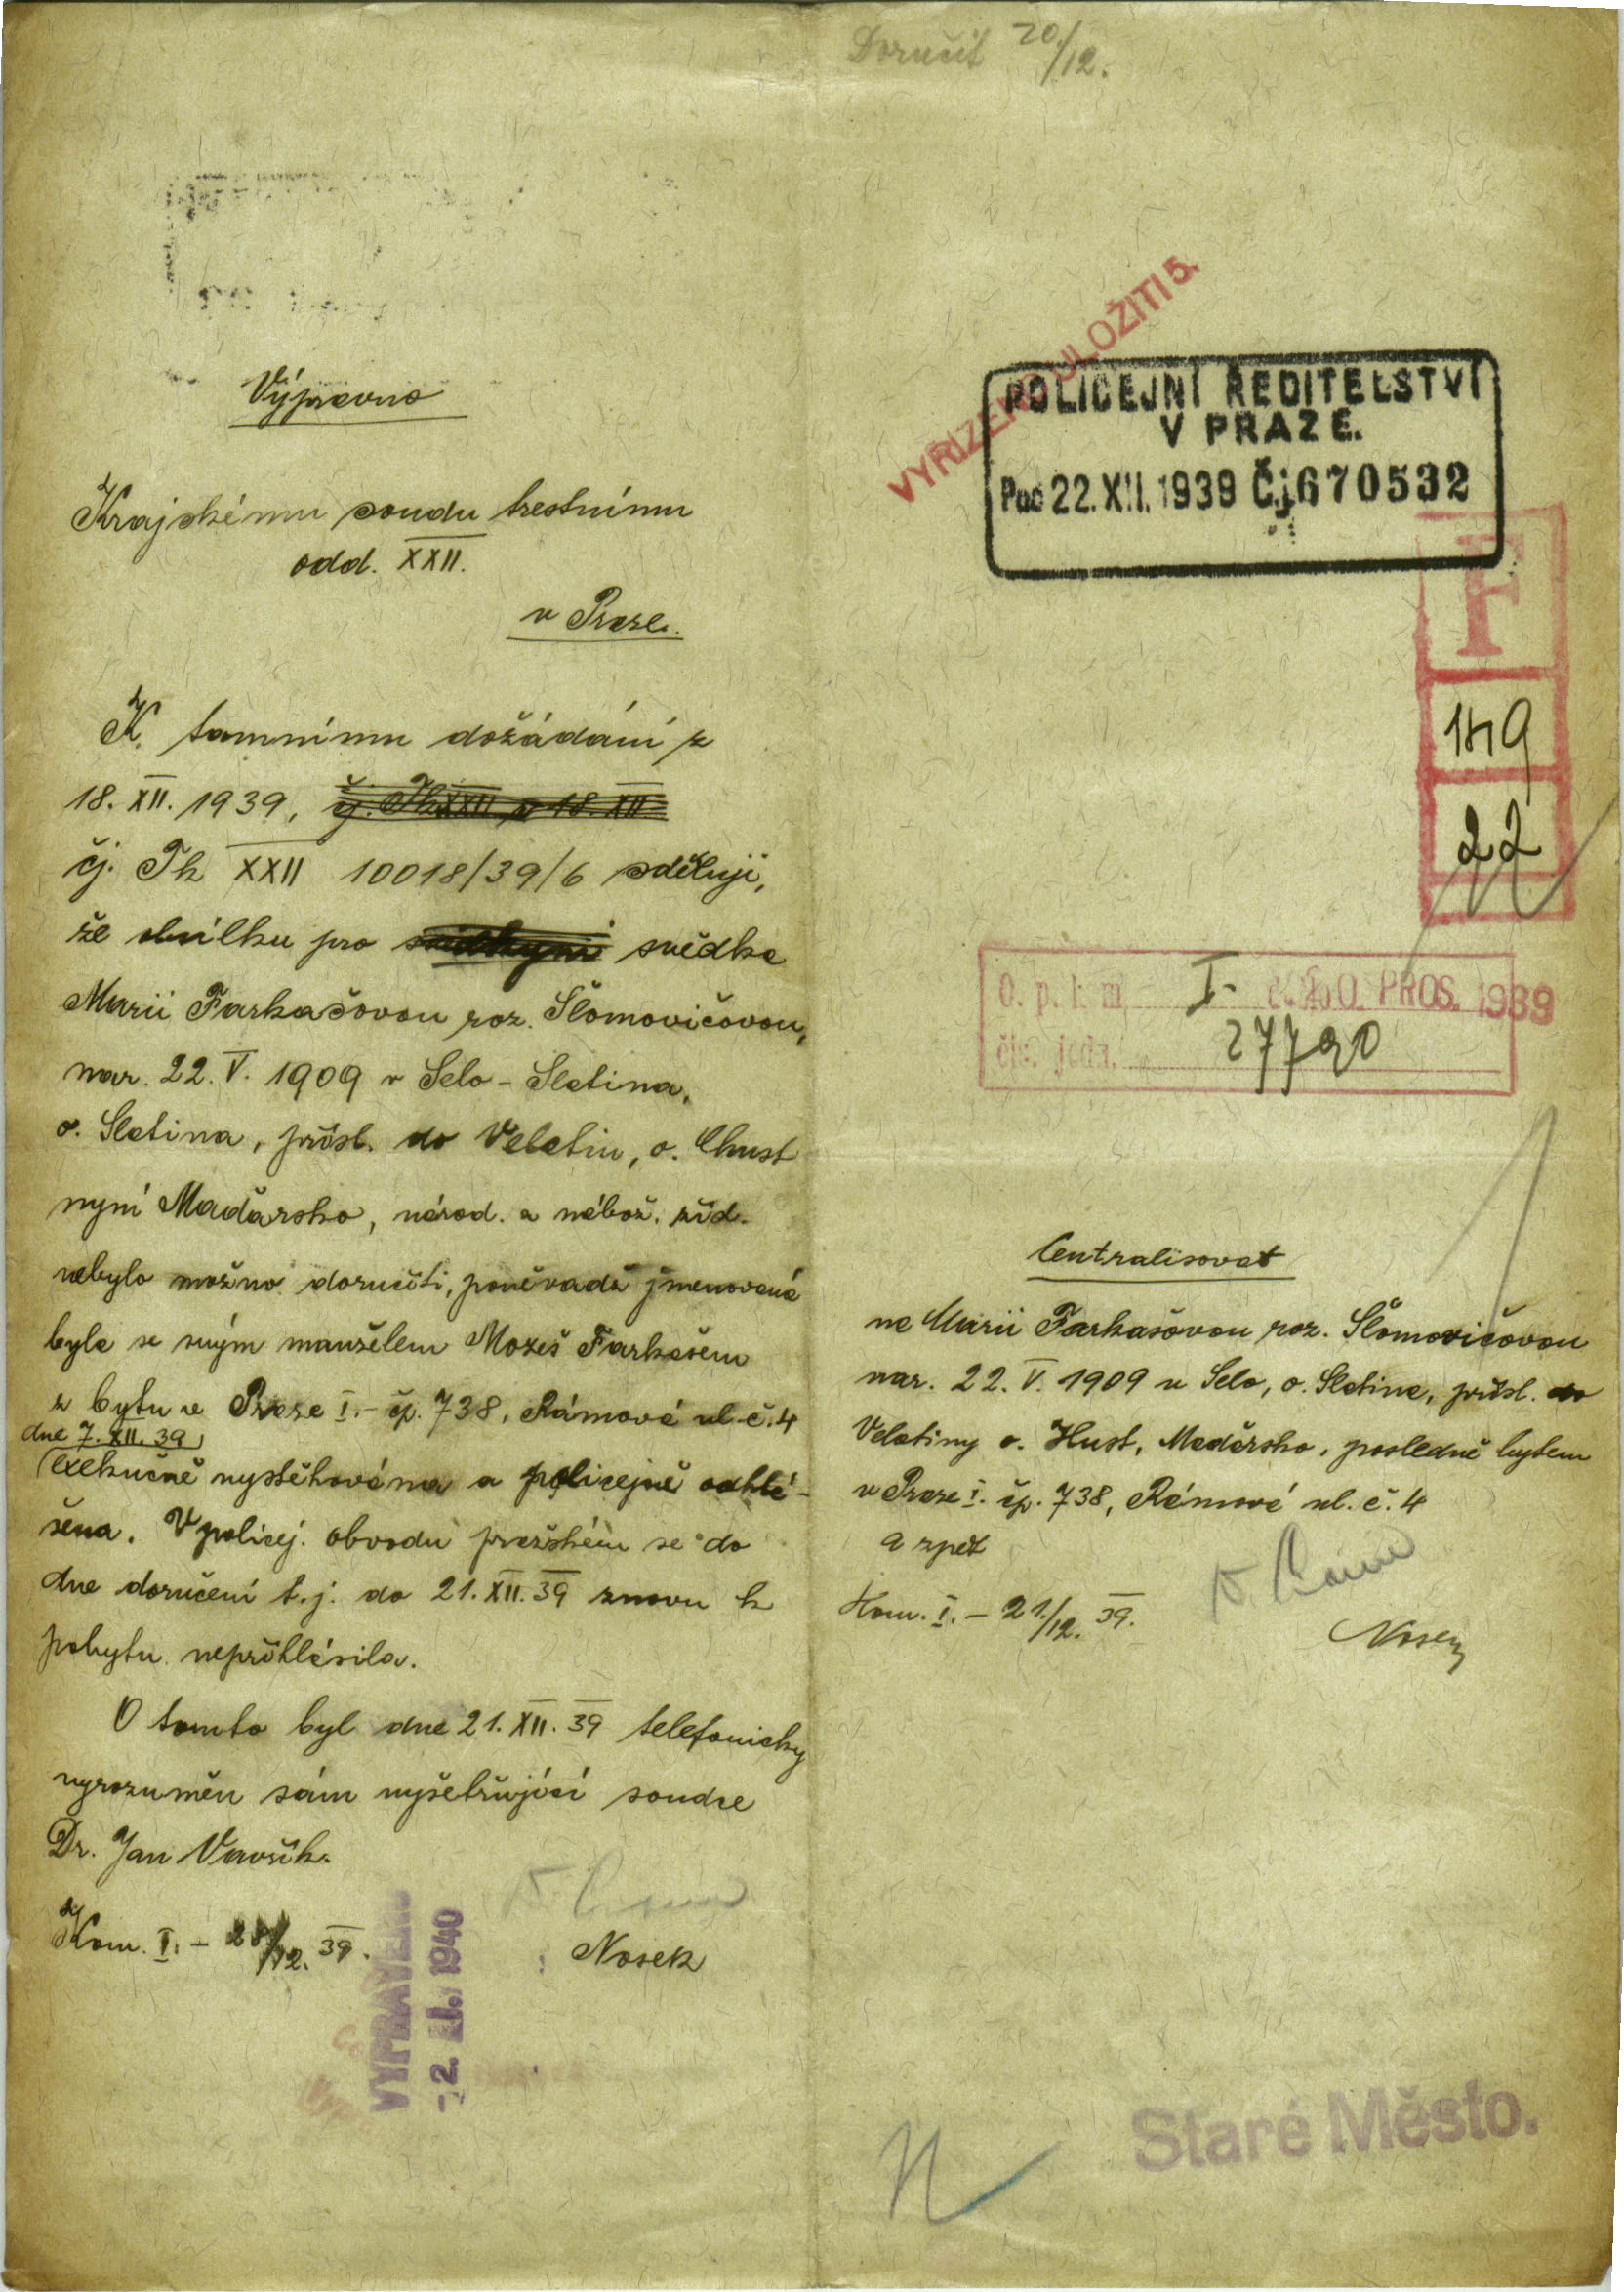 Doručit 20/12.
Výpravna
Krajskému soudu trestnímu
odd. XXII.
v Praze.
K tamnímu dožádání z
18. XII. 1939, čj. Tk XXII z 18. XII
čj. Tk XXII 10018/39/6 sděluji,
že obsílku pro svědkyni svědka
Marii Farkašovou roz. Šlomovičovou,
nar. 22. V. 1909 v Selo-Slatina,
o. Slatina, přísl. do Veletin, o. Chust
nyní Maďarsko, národ. a nábož. žid.
nebylo možno doručiti, poněvadž jmenovaná
byla se svým manželem Mozeš Farkašem
z bytu v Praze I.- čp. 738, Rámová ul. č. 4
dne 7. XII. 39
exekučně vystěhována a policejně odhlá-
šena. V policej. obvodu pražském se do
dne doručení t.j. do 21. XII. 39 znovu k
pobytu nepřihlásila.
O tomto byl dne 21. XII. 39 telefonicky
vyrozuměn sám vyšetřující soudce
Dr. Jan Vavřík.
Kom. I. - 12. 39.
Nosek
VYPRAVENO
-2. I. 1940
VYŘÍZENO ULOŽITI 5.
POLICEJNÍ ŘEDITELSTVÍ
V PRAZE.
Pod 22. XII. 1939 Čj 670532
F
149
22
O. p. k. m. I. 20. PROS. 1939
čís. jedn. 27790
Centralisovat
na Marii Farkašovou roz. Šlomovičovou
nar. 22. V. 1909 v Selo, o. Slatina, přísl. do
Veletiny o. Hust, Maďarsko, posledně bytem
v Praze I. čp. 738, Rámová ul. č. 4
a zpět
Kom. I. - 21/12. 39.
Nosek
Staré Město.